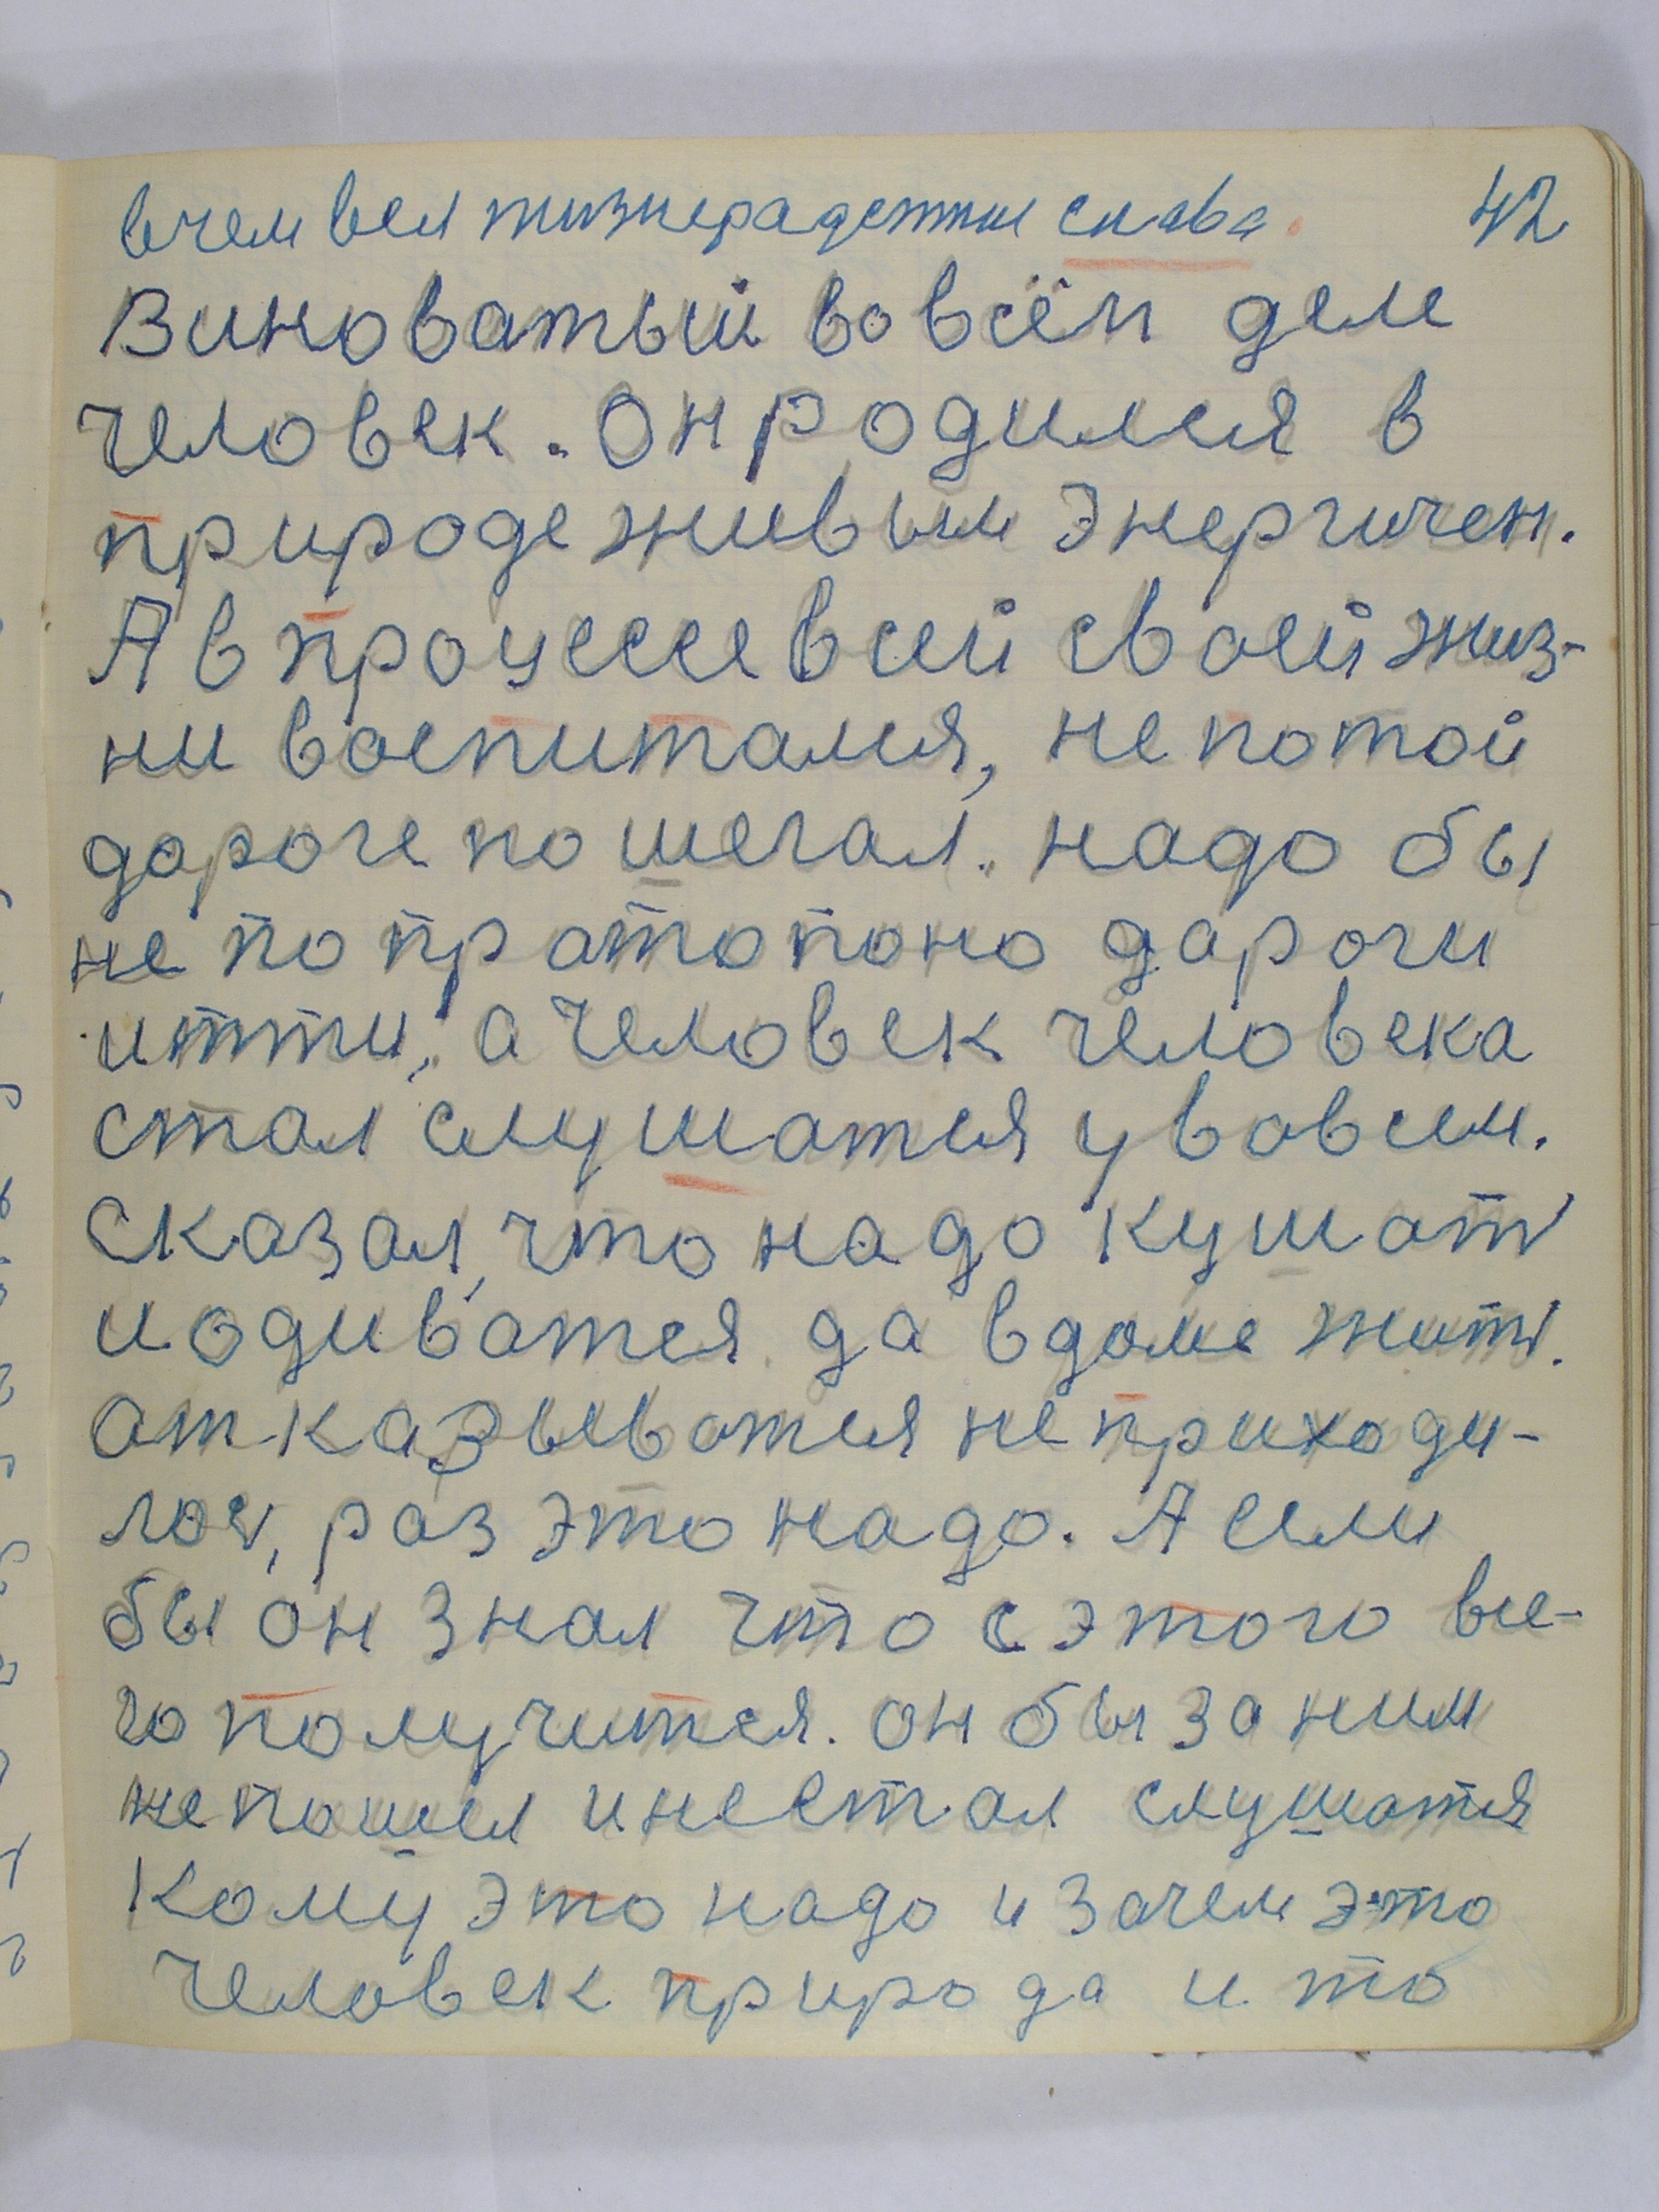 в чем вся жизнерадостная слава. 42
Виноватый во всём деле
человек. Он родился в
природе живым энергичен.
А в процессе всей своей жиз-
ни воспитался, не по той
дороге пошегал. надо бы
не по пратопоно дароги
итти, а человек человека
стал слушатся у вовсем.
сказал, что надо кушать
и одиватся да в доме жить.
отказыватся не приходи-
лось, раз это надо. А если
бы он знал что с этого все-
го получится. он бы за ним
не пошел и не стал слушатся
Кому это надо и зачем это
человек природа и то